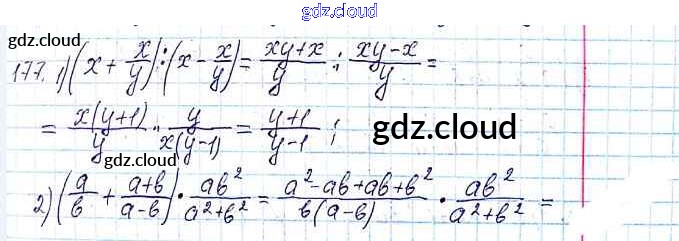 gdz.cloud
gdz.cloud
177. 1) (x + x/y) : (x - x/y) = (xy+x)/y : (xy-x)/y =
= x(y+1)/y · y/x(y-1) = (y+1)/(y-1) ;
gdz.cloud
gdz.cloud
2) (a/b + (a+b)/(a-b)) · ab²/(a²+b²) = (a²-ab+ab+b²)/b(a-b) · ab²/(a²+b²) =